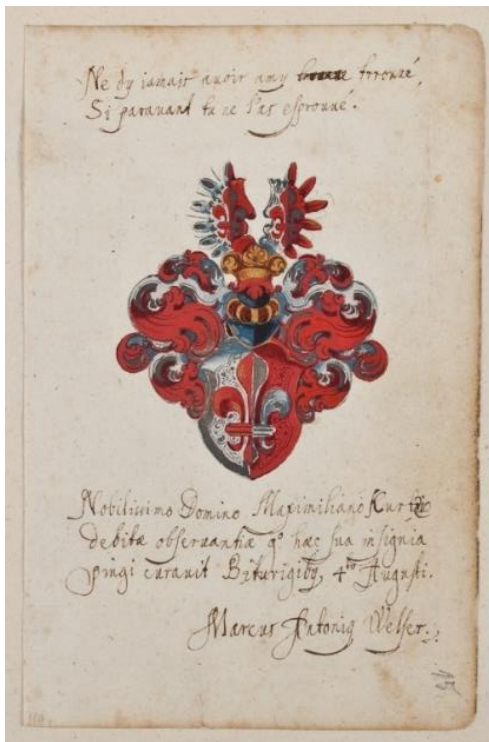 Ne dy iamais avoir amy trouué,
Si paravant tu ne l'as esprouué.
Nobilissimo Domino Maximiliano Kurtz
debitæ obseruantiæ g° hæc sua insignia
pingi curauit Biturigibꝫ 4to Augusti.
Marcus Antoniꝰ Welser.